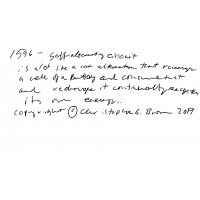 1596 - self electricity circuit
it's a lot like a car alternator that recharges
a cell of a Battery and consumes it
and recharges it continually recharges
its own energy..
copyright © Christopher G. Brown 2019